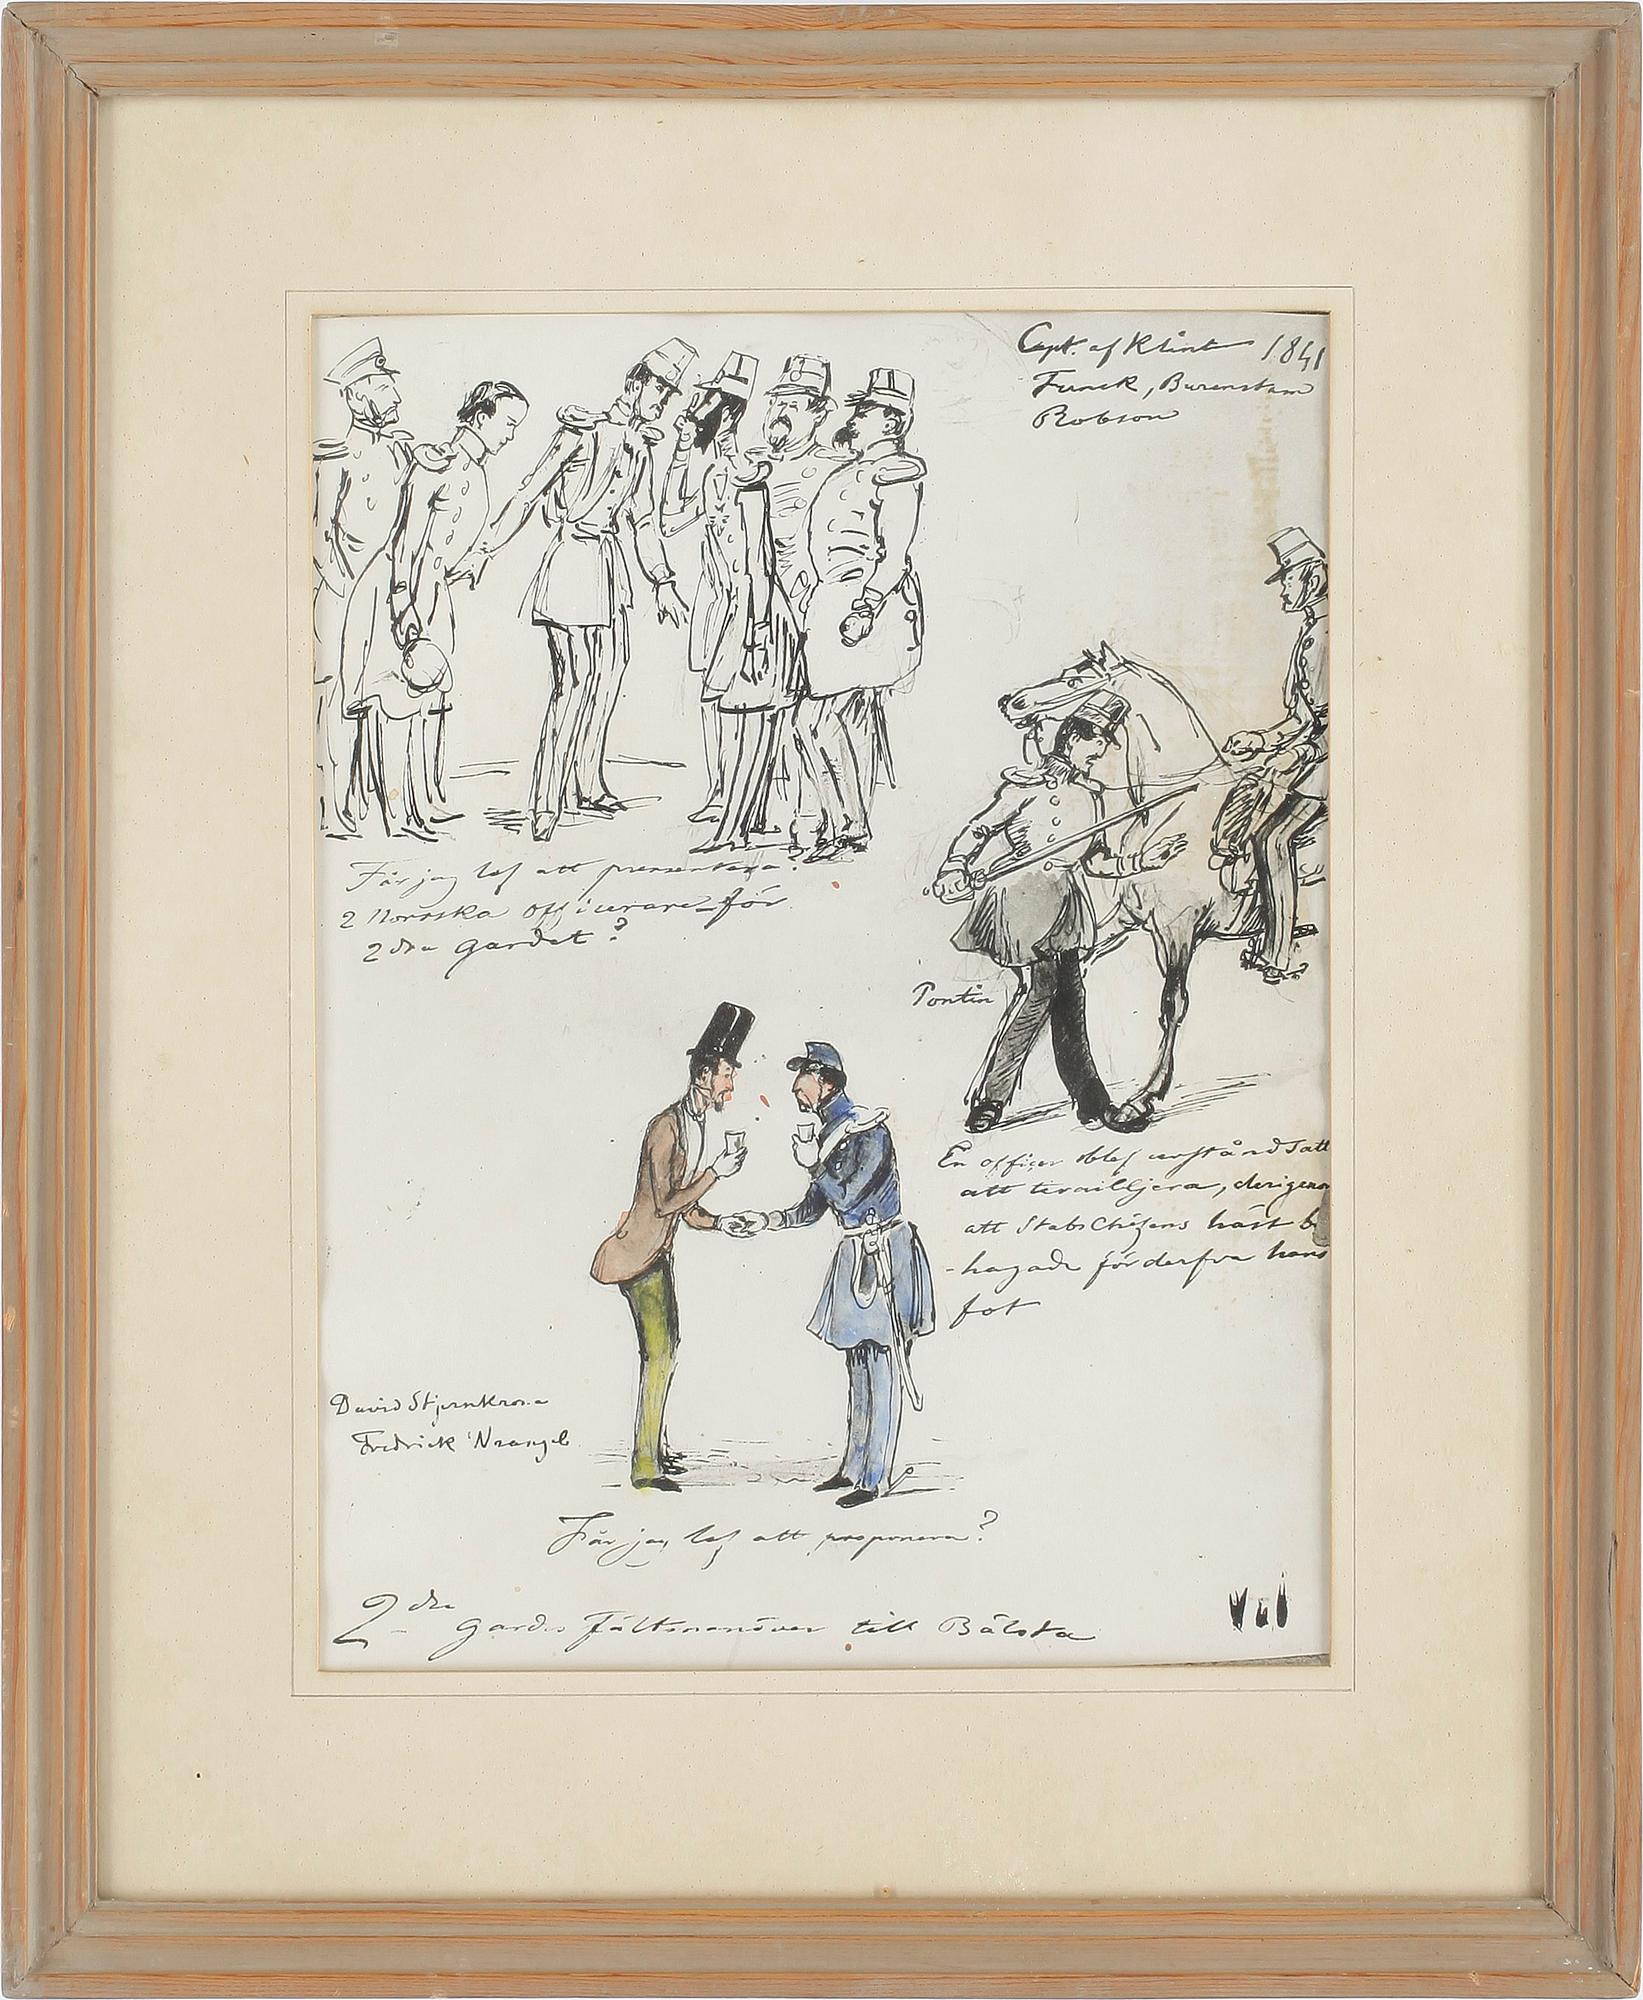 Capt. af Klint 1841
Funck, Burenstam
Robson
Får jag lof att presentera?
2 Norrska officerare för
2dra gardet?
Pontin
En officer blef urståndsatt
att tirailljera, derigenom
att StabsChefens häst be
-hagade förderfva hans
fot
David Stjernkrona
Fredrick Wrangel
Får jag lof att proponera?
2dra Gardes Fältmanöver till Bålsta